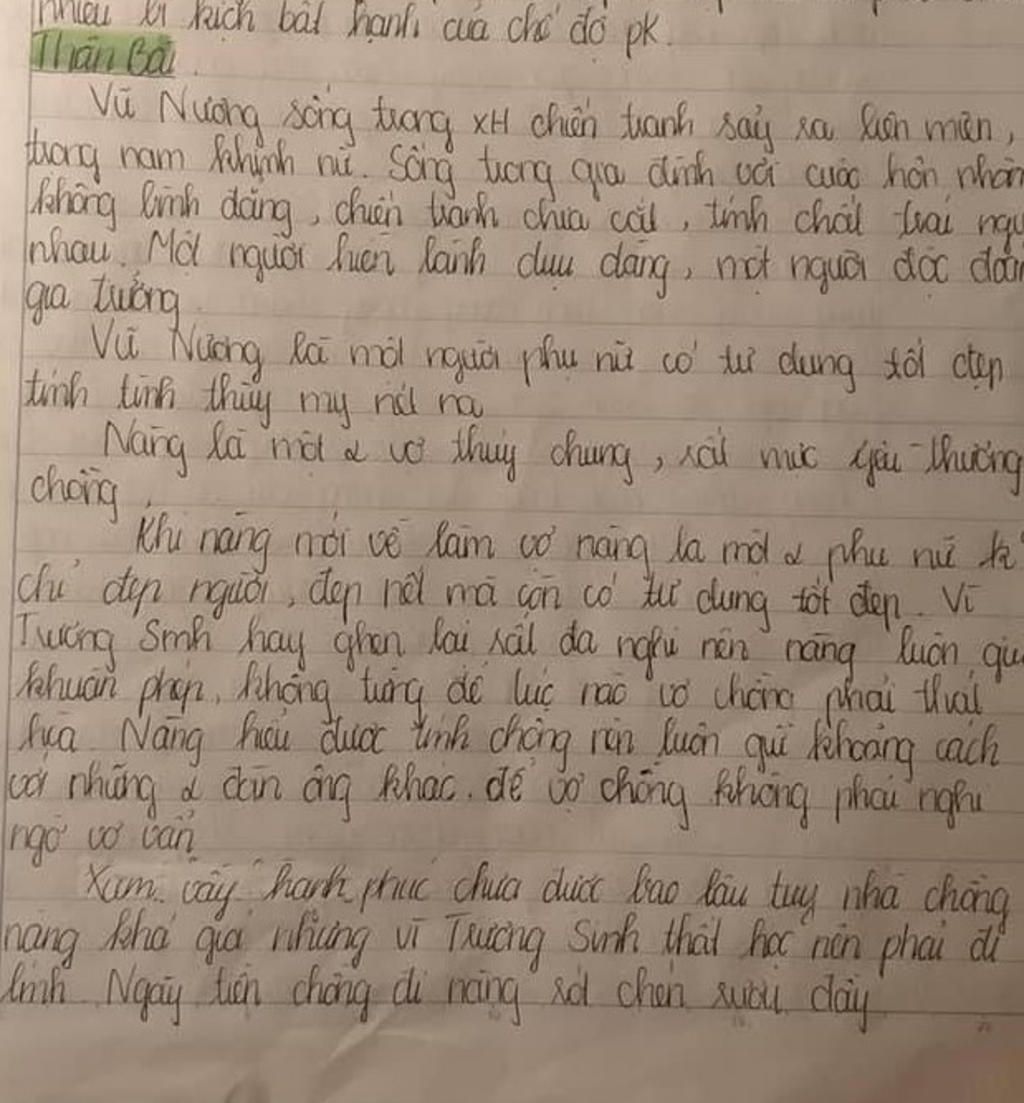 nhiều bi kịch bất hạnh của chế độ pk.
Thân Bài.
Vũ Nương sống trong XH chiến tranh sảy ra liên miên,
trọng nam khinh nữ. Sống trong gia đình với cuộc hôn nhân
không bình đẳng, chiến tranh chia cắt, tính chất trái ngư
nhau. Một người hiền lành dịu dàng, một người độc đoán
gia trưởng.
Vũ Nương là một người phụ nữ có tư dung tốt đẹp
tính tình thùy mỵ nết na
Nàng là một vợ thủy chung, rất mực yêu thương
chồng.
Khi nàng mới về làm vợ nàng là một phụ nữ k
chỉ đẹp người, đẹp nết mà còn có tư dung tốt đẹp. Vì
Trương Sinh hay ghen lại rất đa nghi nên nàng luôn giữ
khuân phép, không từng để lúc nào vợ chồng phải thất
hòa. Nàng hiểu được tính chồng nên luôn giữ khoảng cách
với những đàn ông khác. để vợ chồng không phải nghi
ngờ vơ vẩn
Xum vầy hạnh phúc chưa được bao lâu tuy nhà chồng
nàng khá giả nhưng vì Trương Sinh thất học nên phải đi
lính. Ngày tiễn chồng đi nàng rót chén rượu đầy